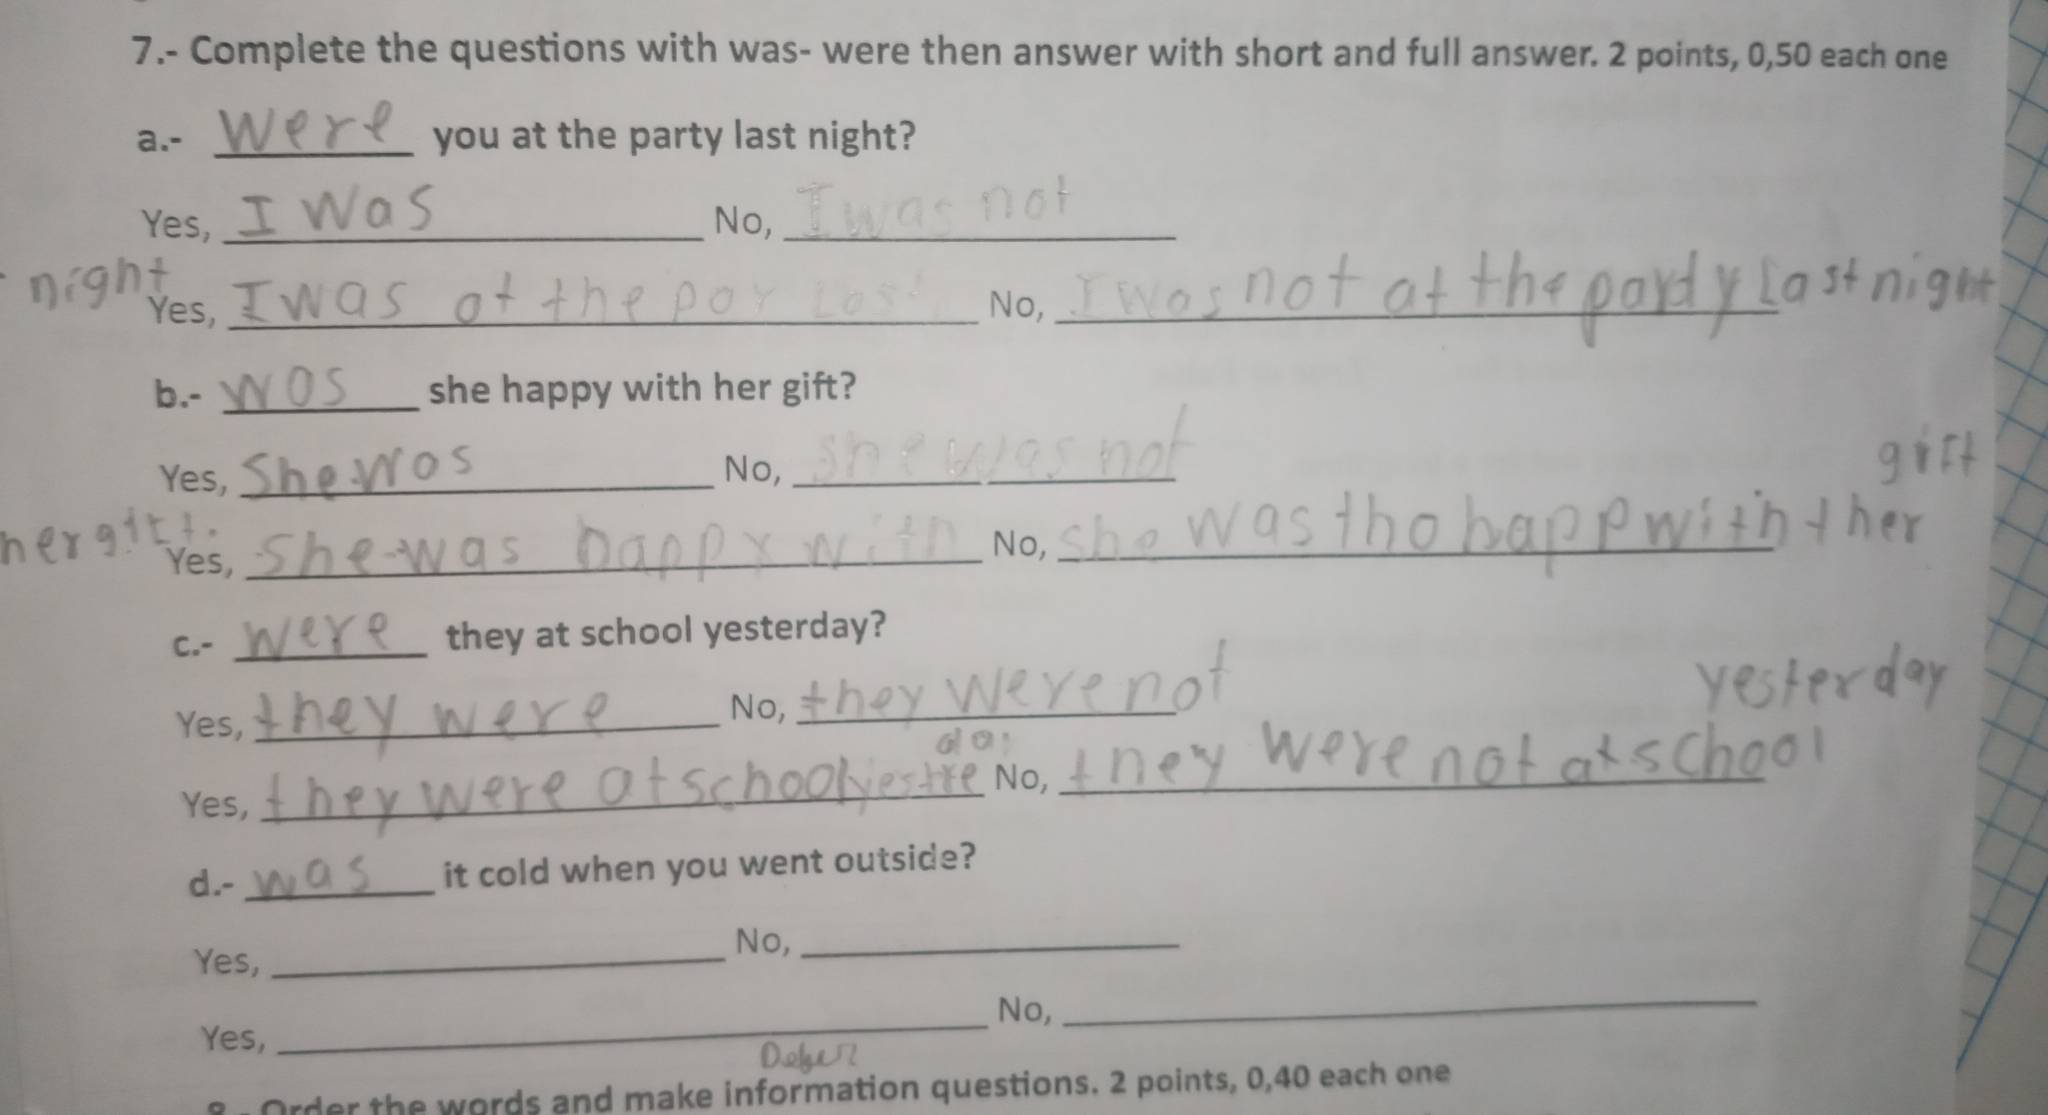 7.- Complete the questions with was- were then answer with short and full answer. 2 points, 0,50 each one
a.- were you at the party last night?
Yes, I was No, I was not
night
Yes, I was at the par last No, I was not at the pardy last night
b.- was she happy with her gift?
gift
Yes, She was No, she was not
her gift.
Yes, She was happy with No, she was tho happ with t her
c.- were they at school yesterday?
yesterday
Yes, they were No, they were not
da
Yes, they were at school yestre No, they were not at school
d.- was it cold when you went outside?
Yes, No,
Yes, No,
Deber
8.- Order the words and make information questions. 2 points, 0,40 each one